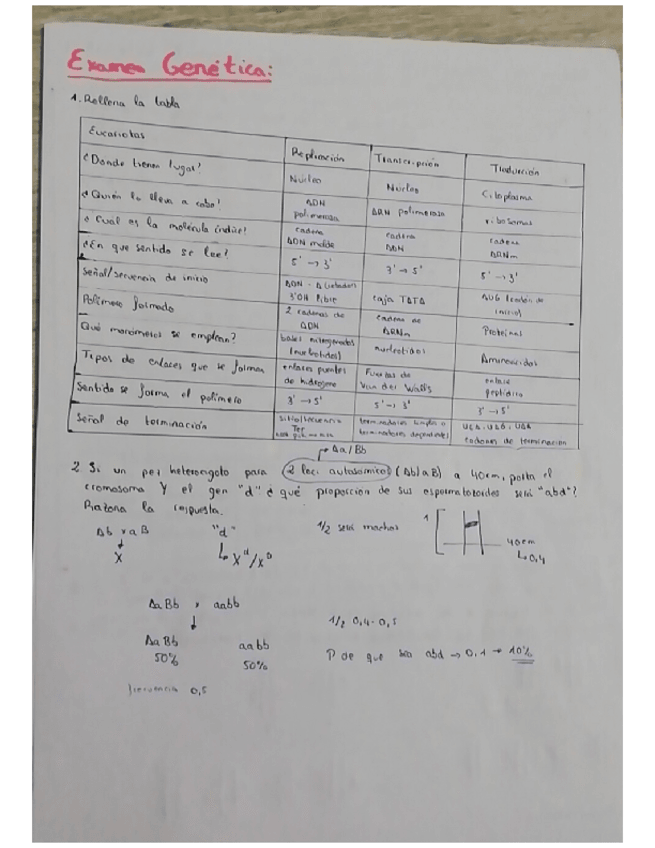 Examen Genética:
1. Rellena la tabla
Eucariotas Replicación Transcripción Traducción
¿Donde tienen lugar? Núcleo Núcleo Citoplasma
¿Quién lo lleva a cabo? ADN polimerasa ARN polimerasa ribosomas
¿Cual es la molécula índice? cadena ADN molde cadena ADN cadena ARNm
¿En que sentido se lee? 5' → 3' 3' → 5' 5' → 3'
Señal/secuencia de inicio 3'OH libre caja TATA AUG (codón de inicio)
Polímero formado 2 cadenas de ADN cadena de ARNm Proteínas
Qué monómeros se emplean? bases nitrogenadas (nucleotidos) nucleotidos Aminoacidos
Tipos de enlaces que se forman enlaces puentes de hidrogeno Fuerzas de Van der Walls enlace peptídico
Sentido se forma el polímero 3' → 5' 5' → 3' 3' → 5'
Señal de terminación sitio/secuencia Ter terminadores simples o terminadores dependientes UGA, codones de terminación
Aa/Bb
2 Si un pez heterocigoto para 2 loci autosomicos (Ab/aB) a 40cm, porta el
cromosoma Y el gen "d" ¿ qué proporcion de sus espermatozoides será "abd"?
Razona la respuesta.
Ab x aB "d" 1/2 será machos 1
X X^d/X^D 40cm
0,4
AaBb x aabb
1/2 0,4 · 0,5
AaBb aabb
50% 50%
P de que sea abd → 0,1 → 10%
frecuencia 0,5